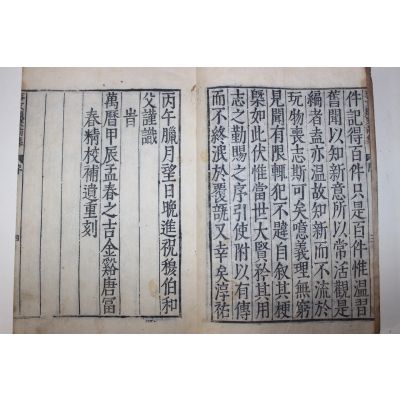 件記得百件只是百件惟溫習
舊聞以知新意所以常活觀是
編者盍亦溫故知新而不流於
玩物喪志斯可矣噫義理無窮
見聞有限輒犯不韙自叙其梗
槩如此伏惟當世大賢矜其用
志之勤賜之序引使附以有傳
而不終泯於覆瓿又幸矣淳祐
丙午臘月望日晚進祝穆伯和
父謹識
旹
萬曆甲辰孟春之吉金谿唐冨
春精校補遺重刻